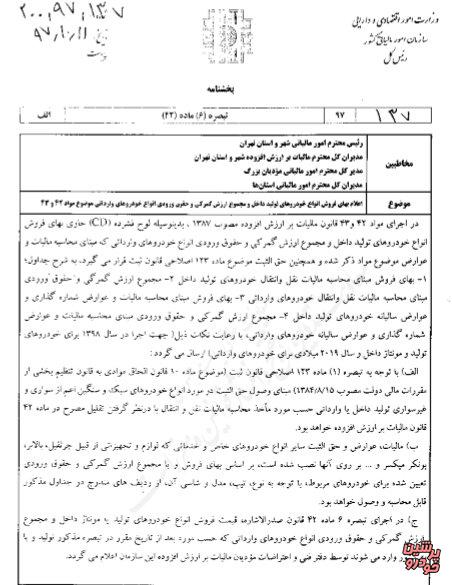 ۲۰۰,۹۷,۱۳۷
۹۷,۱۰,۱۱
وزارت امور اقتصادی و دارایی
سازمان امور مالیاتی کشور
رئیس کل
بخشنامه
۱۳۷
۹۷
تبصره (۶) ماده (۴۲)
الف
مخاطبین
رئیس محترم امور مالیاتی شهر و استان تهران
مدیران کل محترم مالیات بر ارزش افزوده شهر و استان تهران
مدیر کل محترم امور مالیاتی مؤدیان بزرگ
مدیران کل محترم امور مالیاتی استان‌ها
موضوع
اعلام بهای فروش انواع خودروهای تولید داخل و مجموع ارزش گمرکی و حقوق ورودی انواع خودروهای وارداتی موضوع مواد ۴۲ و ۴۳
در اجرای مواد ۴۲ و ۴۳ قانون مالیات بر ارزش افزوده مصوب ۱۳۸۷ ، بدینوسیله لوح فشرده (CD) حاوی بهای فروش
انواع خودروهای تولید داخل و مجموع ارزش گمرکی و حقوق ورودی انواع خودروهای وارداتی که مبنای محاسبه مالیات و
عوارض موضوع مواد ذکر شده و همچنین حق الثبت موضوع ماده ۱۲۳ اصلاحی قانون ثبت قرار می گیرد، به شرح جداول:
۱- بهای فروش مبنای محاسبه مالیات نقل وانتقال خودروهای تولید داخل ۲- مجموع ارزش گمرکی و حقوق ورودی
مبنای محاسبه مالیات نقل وانتقال خودروهای وارداتی ۳- بهای فروش مبنای محاسبه مالیات و عوارض شماره گذاری و
عوارض سالیانه خودروهای تولید داخل ۴- مجموع ارزش گمرکی و حقوق ورودی مبنای محاسبه مالیات و عوارض
شماره گذاری و عوارض سالیانه خودروهای وارداتی، با رعایت نکات ذیل( جهت اجرا در سال ۱۳۹۸ برای خودروهای
تولید و مونتاژ داخل و سال ۲۰۱۹ میلادی برای خودروهای وارداتی) ارسال می گردد:
الف) با توجه به تبصره (۱) ماده ۱۲۳ اصلاحی قانون ثبت (موضوع ماده ۱۰ قانون الحاق موادی به قانون تنظیم بخشی از
مقررات مالی دولت مصوب ۱۳۸۴/۸/۱۵) مبنای وصول حق الثبت در مورد انواع خودروهای سبک و سنگین اعم از سواری و
غیرسواری تولید داخل یا وارداتی حسب مورد مأخذ محاسبه مالیات نقل و انتقال با درنظر گرفتن تقلیل مصرح در ماده ۴۲
قانون مالیات بر ارزش افزوده خواهد بود.
ب) مالیات، عوارض و حق الثبت سایر انواع خودروهای خاص و خدماتی که لوازم و تجهیزاتی از قبیل جرثقیل، بالابر،
بونکر میکسر و ... بر روی آنها نصب شده است، بر اساس بهای فروش و یا مجموع ارزش گمرکی و حقوق ورودی
تعیین شده برای خودروهای مربوط، با توجه به نوع، تیپ، مدل و شاسی آن، از ردیف های مندرج در جداول مذکور
قابل محاسبه و وصول خواهد بود.
ج) در اجرای تبصره ۶ ماده ۴۲ قانون صدرالاشاره، قیمت فروش انواع خودروهای تولید یا مونتاژ داخل و مجموع
ارزش گمرکی و حقوق ورودی انواع خودروهای وارداتی که حسب مورد بعد از تاریخ مقرر در تبصره مذکور تولید و یا
وارد می شوند، توسط دفتر فنی و اعتراضات مؤدیان مالیات بر ارزش افزوده این سازمان اعلام می گردد.
پرشین
خودرو